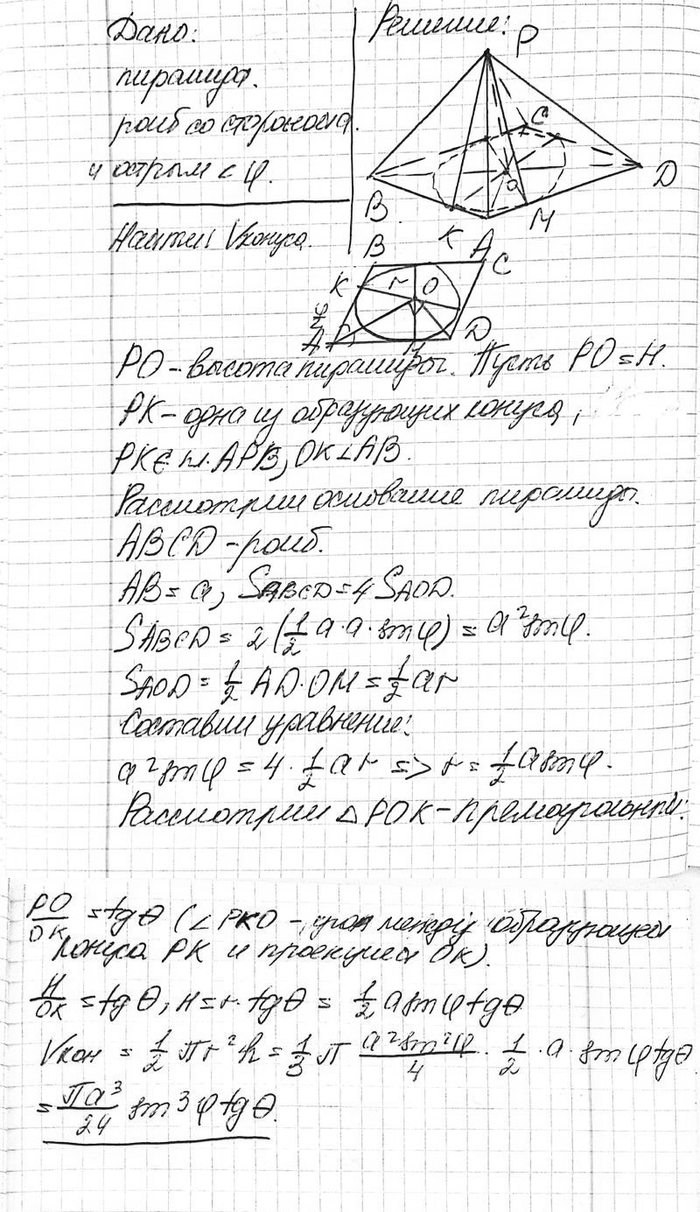 Дано:
пирамида.
ромб со стороной a.
и острым < φ.
Найти: Vконуса.
Решение:
P
C
B
O
D
K
A
M
B
C
K
r
O
φ
A
D
PO – высота пирамиды. Пусть PO = H.
PK – одна из образующих конуса,
PK ∈ пл. APB, OK ⊥ AB.
Рассмотрим основание пирамиды.
ABCD – ромб.
AB = a, SABCD = 4 SAOD.
SABCD = 2(1/2 a·a·sinφ) = a²sinφ.
SAOD = 1/2 AD·OM = 1/2 ar
Составим уравнение:
a²sinφ = 4·1/2 ar => r = 1/2 a sinφ.
Рассмотрим △POK – прямоугольный:
PO/OK = tgθ (∠PKO – угол между образующей
конуса PK и проекцией OK).
H/OK = tgθ, H = r·tgθ = 1/2 a sinφ tgθ
Vкон = 1/2 πr²h = 1/3 π a²sin²φ/4 · 1/2 · a · sinφ tgθ
= πa³/24 sin³φ tgθ.